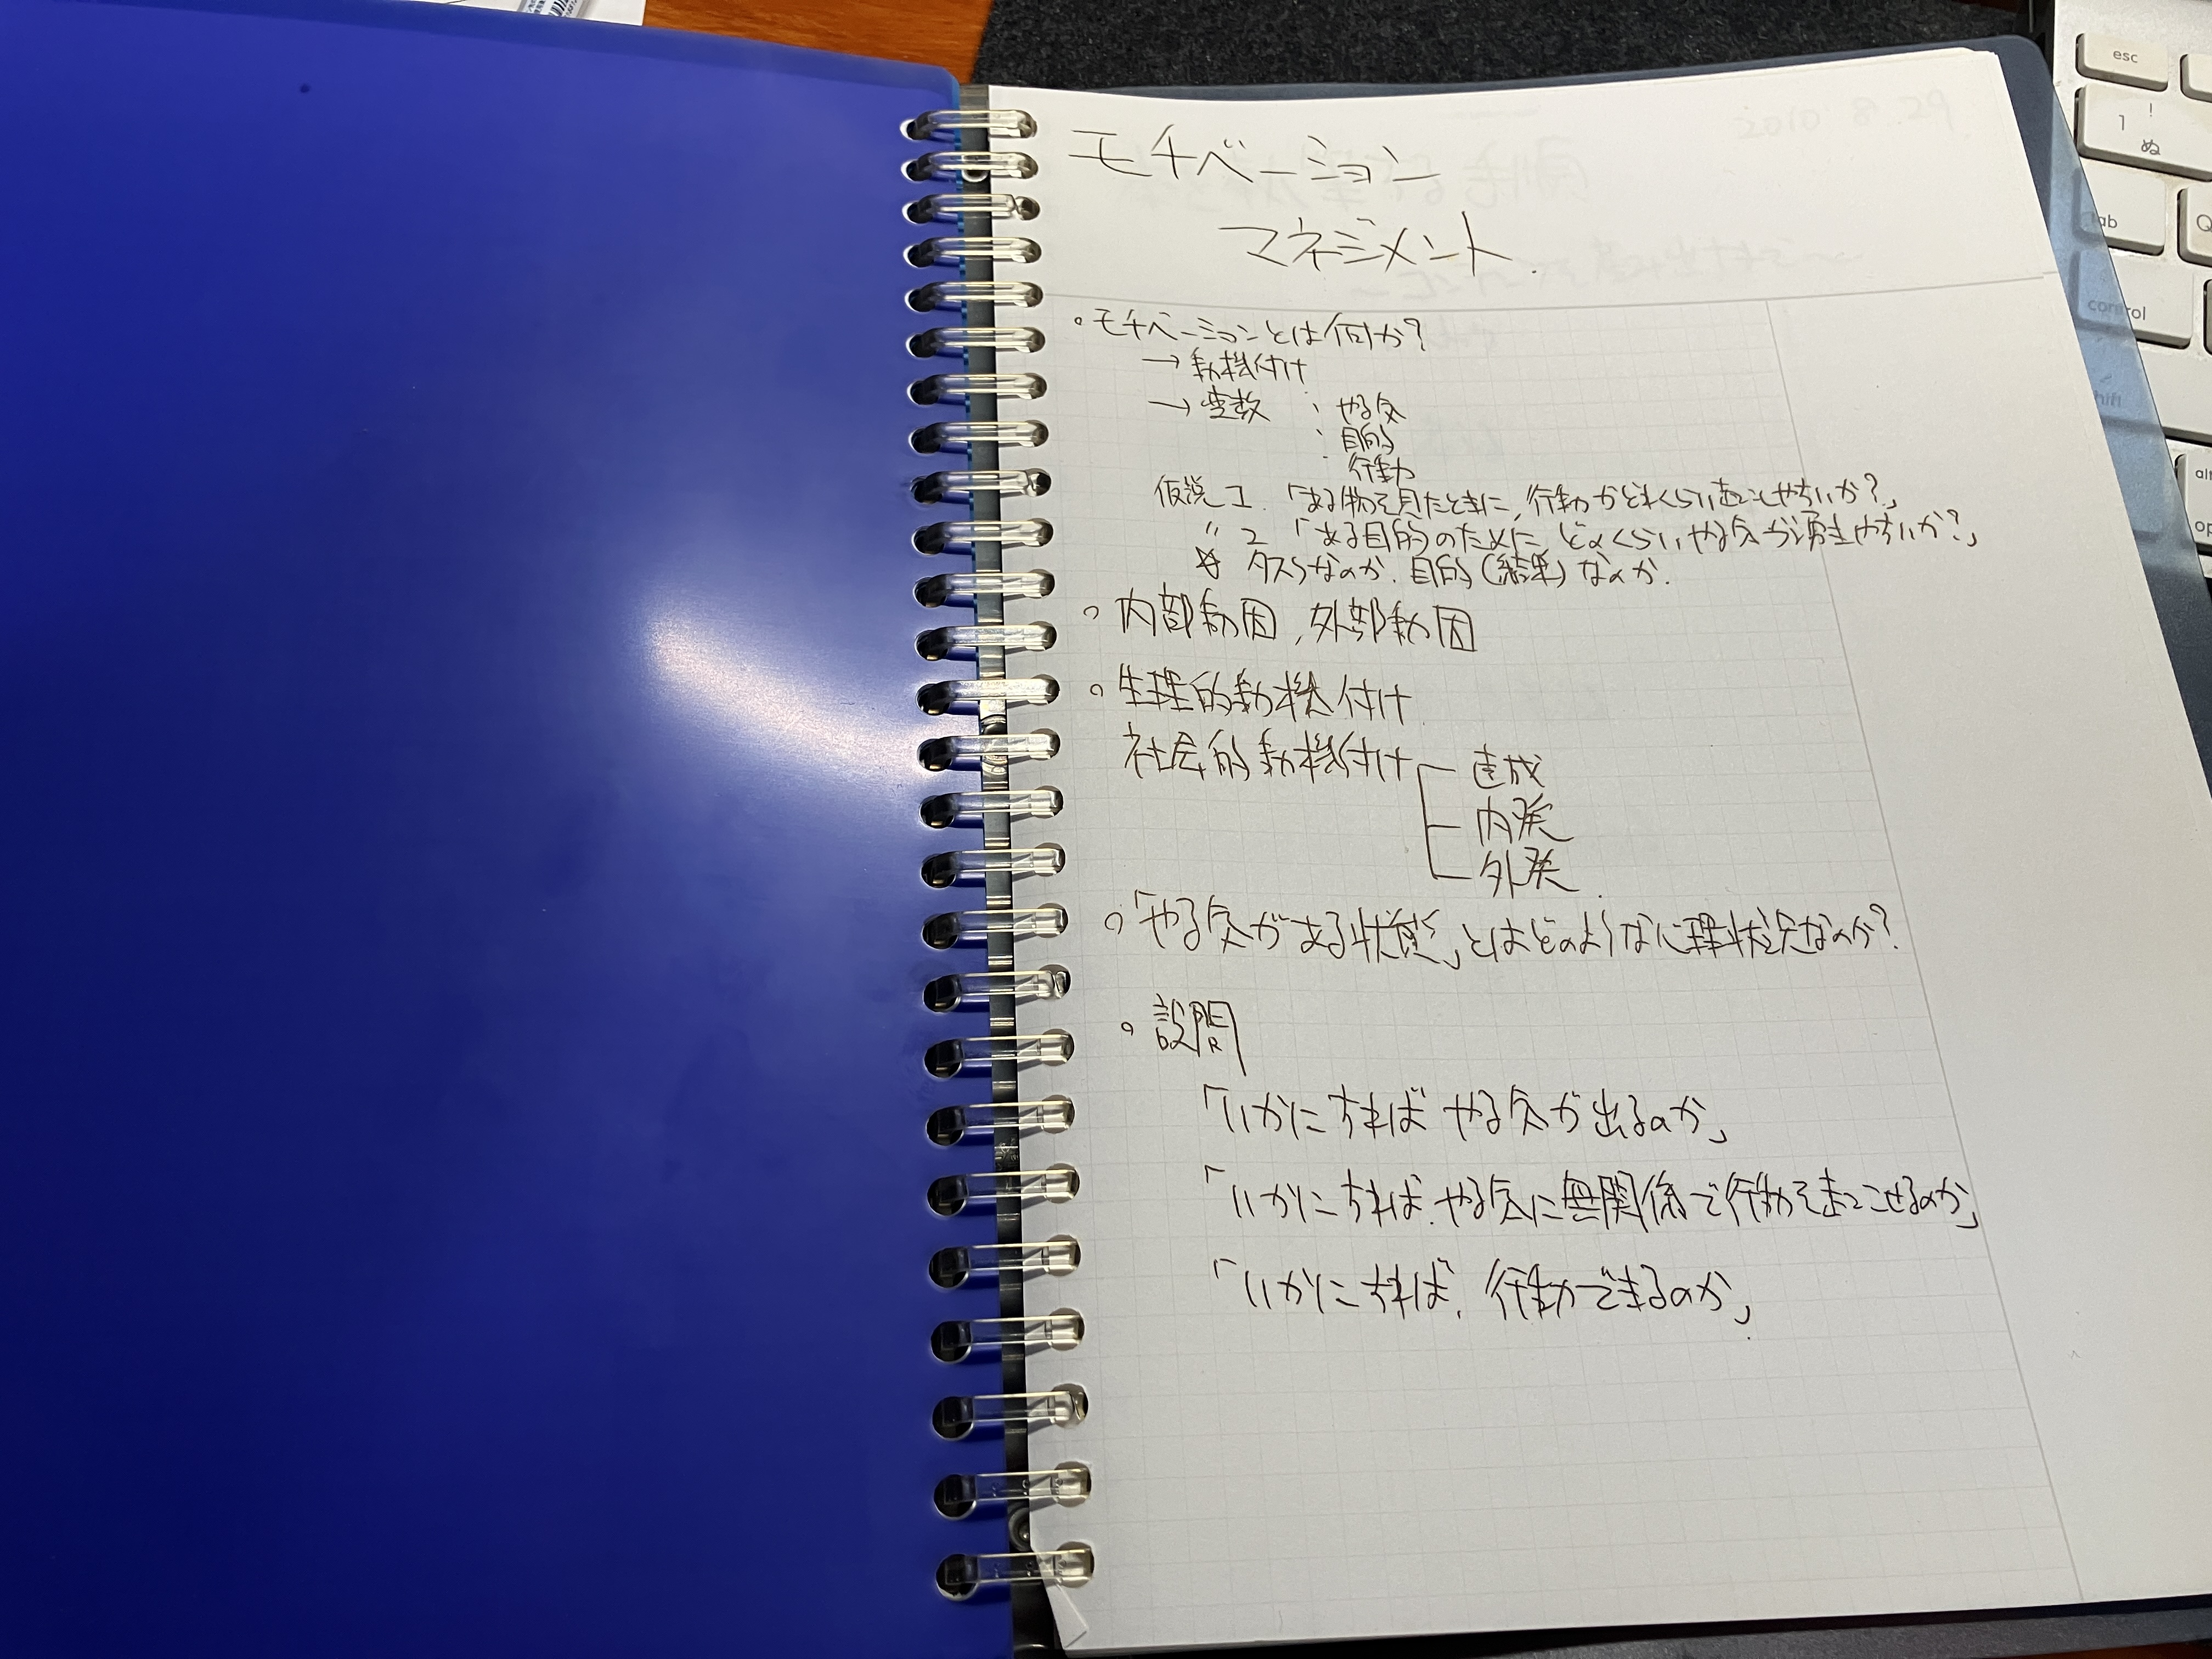 モチベーション
マネジメント.
。モチベーションとは何か?
→ 動機付け
→ 変数 : やる気
: 目的
: 行動
仮説 1. 「ある物を見たときに, 行動がどれくらい起こしやすいか?」
〃 2 「ある目的のために どのくらい やる気が湧きやすいか?」
☆ タスクなのか. 目的(結果)なのか.
。内部動因, 外部動因
。生理的動機付け
社会的動機付け
達成
内発
外発.
。「やる気がある状態」とはどのような心理状況なのか?
。設問
「いかにすれば やる気が出るのか」
「いかにすれば. やる気に無関係で行動を起こせるのか」
「いかにすれば. 行動できるのか」
2010 8.29
esc
!
1
ぬ
tab
Q
control
shift
alt
op